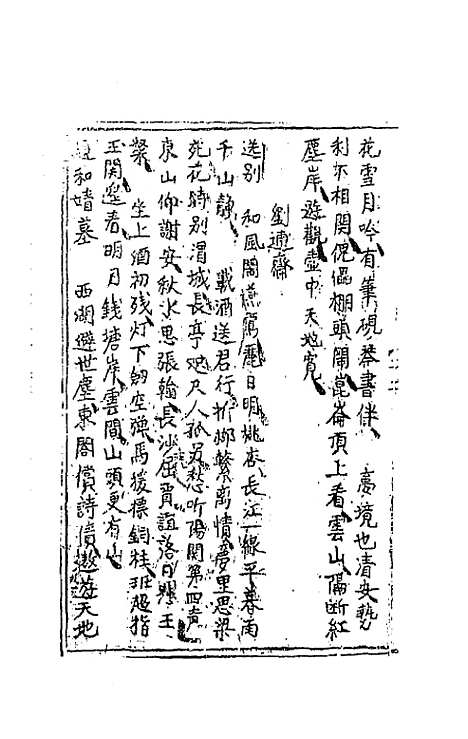 花雪月吟有筆硯琴書伴　處境也清安勢
利不相関傀儡棚頭鬧崑崙頂上看雲山隔断紅
塵岸遊觀壺中天地寬
劉逋齋
送别　和風鬧燕鶯麗日明桃杏長江一線平暮雨
千山靜　載酒送君行折柳繫离情夢里思梁
苑花時别渭城長亭咫尺人孤另愁听陽関第四声
東山仰謝安秋水思張翰長沙屈賈誼洛日羆王
粲　坐上酒初残灯下劍空彈馬援標銅柱班超指
玉関邊春明月錢塘岸雲間山頭更有山
和靖墓　西湖避世塵東閣償詩債遨遊天地